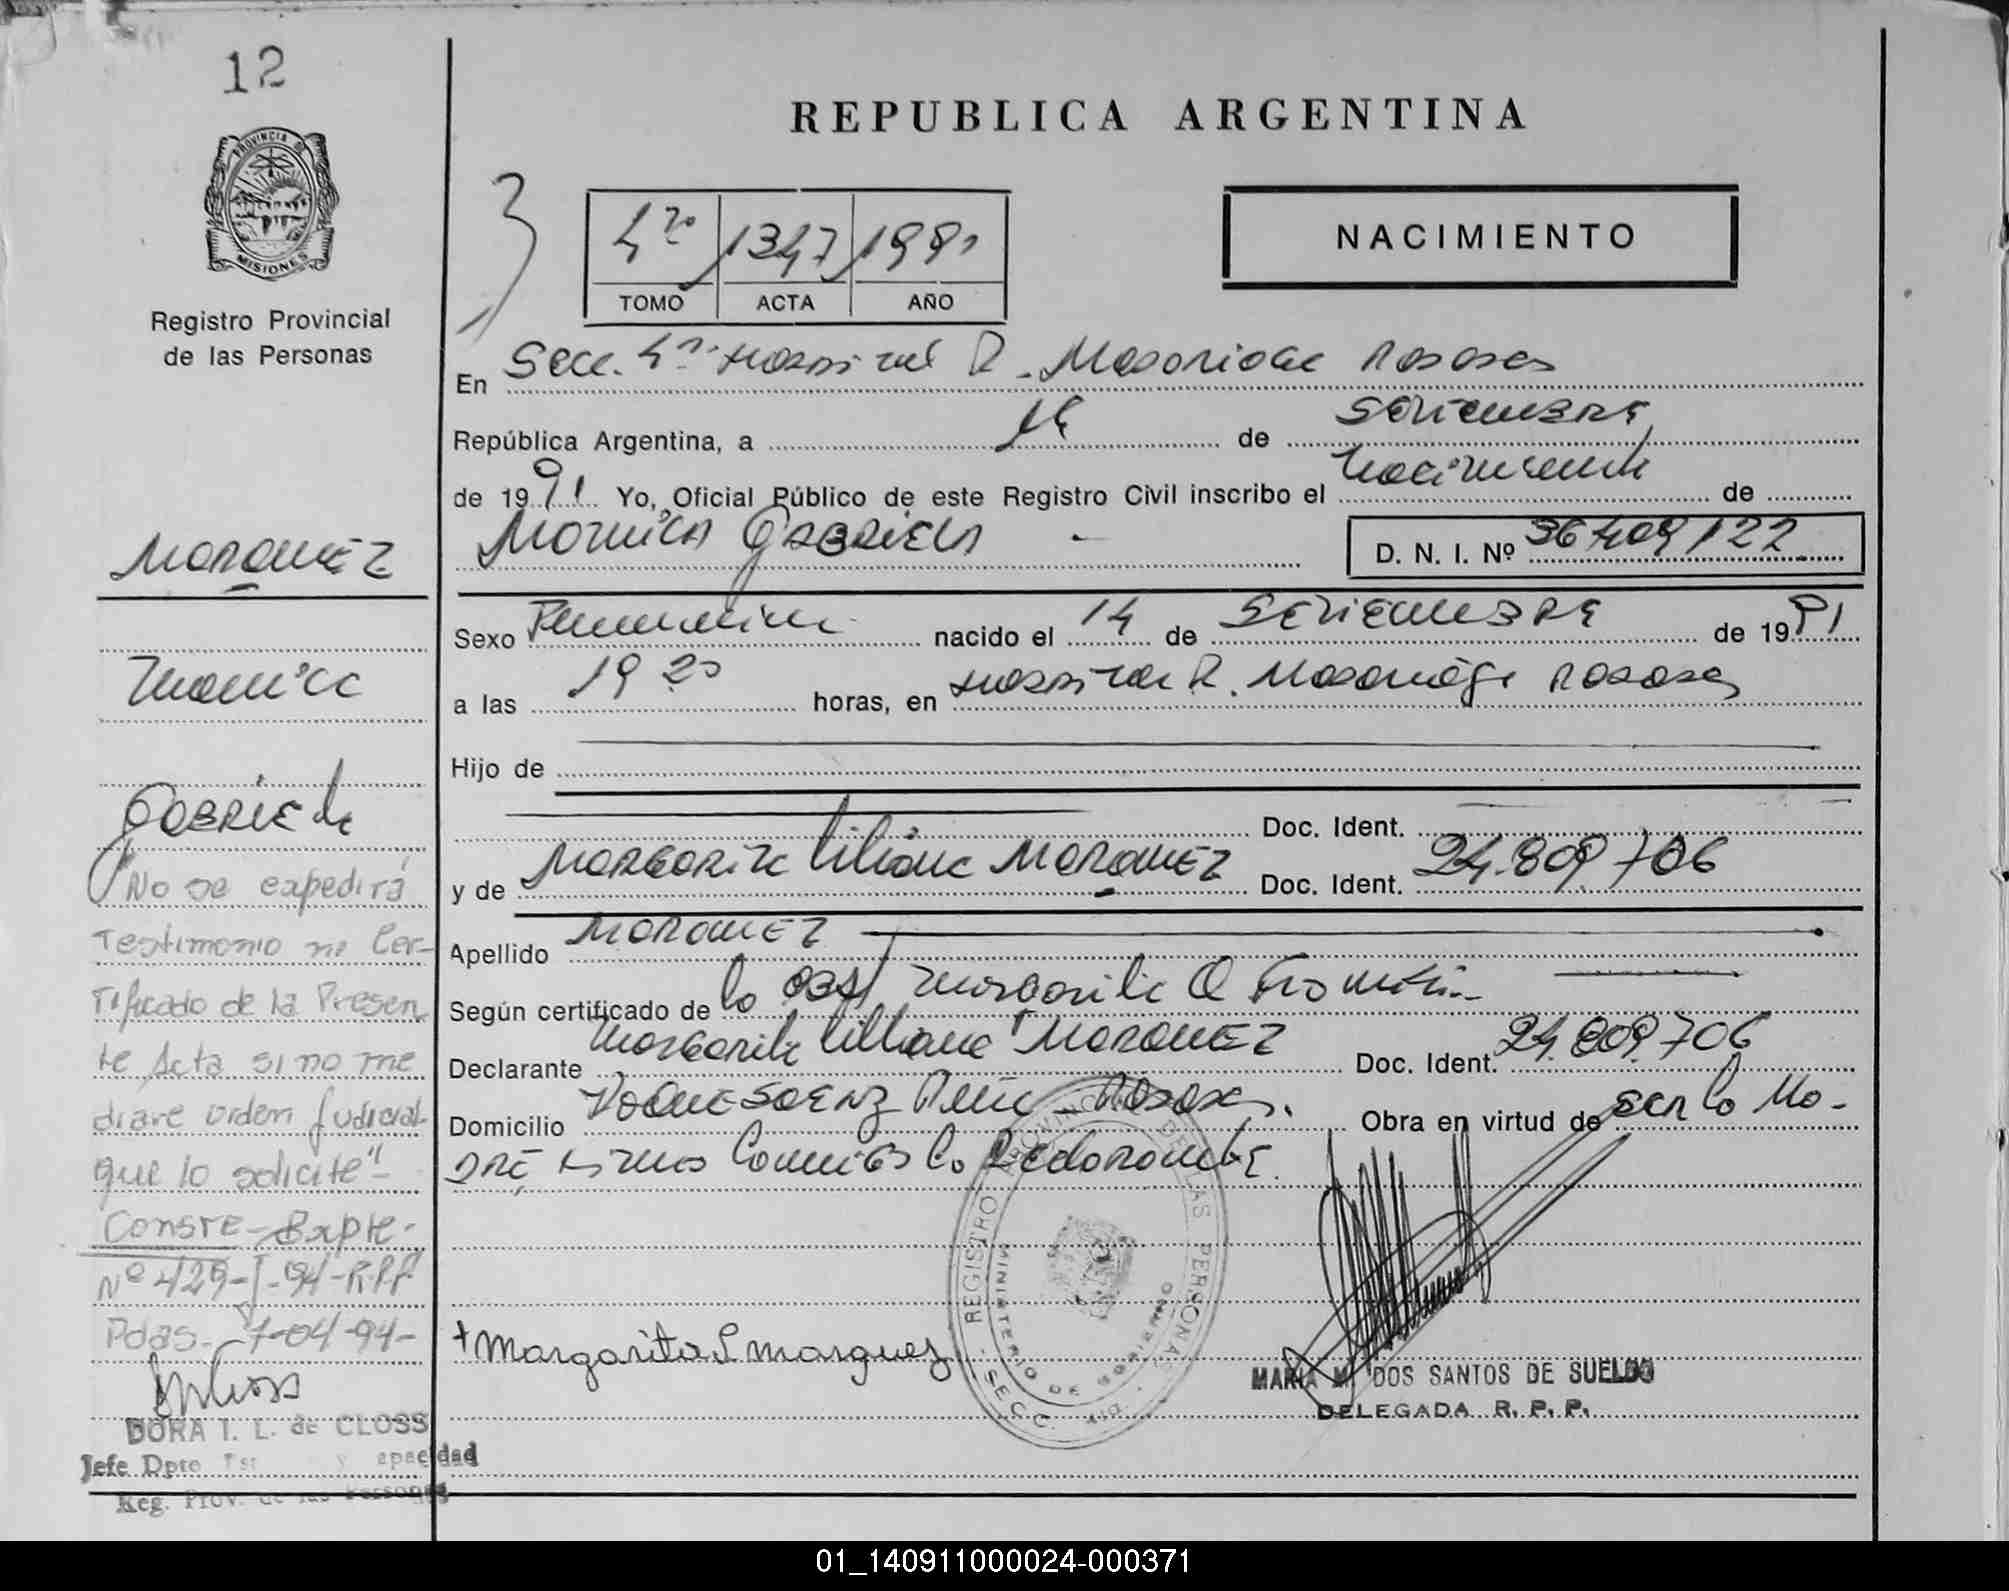 12
REPUBLICA ARGENTINA
PROVINCIA DE
MISIONES
Registro Provincial
de las Personas
3
4to 1347 1991
TOMO ACTA AÑO
NACIMIENTO
En Secc. 4ta Hospital R. Madariaga Posadas
República Argentina, a 19 de Setiembre
de 1991 Yo, Oficial Público de este Registro Civil inscribo el Nacimiento de
Monica Gabriela -
D. N. I. Nº 36409122
Sexo Femenino nacido el 14 de Setiembre de 1991
a las 19 20 horas, en Hospital R. Madariaga Posadas
Hijo de
Doc. Ident.
y de Margarita Liliana Marquez Doc. Ident. 24.809.706
Apellido Marquez
Según certificado de la Obst Margarita Q
Declarante Margarita Liliana Marquez Doc. Ident. 24.809.706
Domicilio Roque Saenz Peña Posadas. Obra en virtud de ser la Ma-
dre firma conmigo la declarante.
+ Margarita L Marquez
REGISTRO PROVINCIAL DE LAS PERSONAS
MINISTERIO DE GOBIERNO
SECC. 4ta
MARIA M. DOS SANTOS DE SUELDO
DELEGADA R. P. P.
Marquez
Monica
Gabriela
"No se expedirá
Testimonio ni Cer-
tificado de la Presen
te Acta si no me
diare orden Judicial
que lo solicite"-
Conste-Expte-
Nº 429-I-94-R.P.P
Pdas. 7-04-94-
DORA I. L. de CLOSS
Jefe Dpto
Reg. Prov. de las Personas
01_140911000024-000371